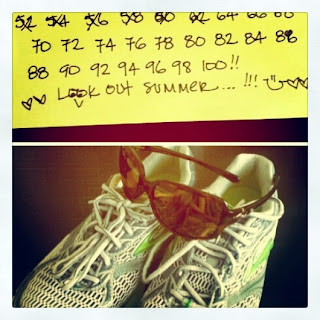 52 54 56 58 60 62 64 66 68
70 72 74 76 78 80 82 84 86
88 90 92 94 96 98 100!!
LOOK OUT SUMMER... !!!